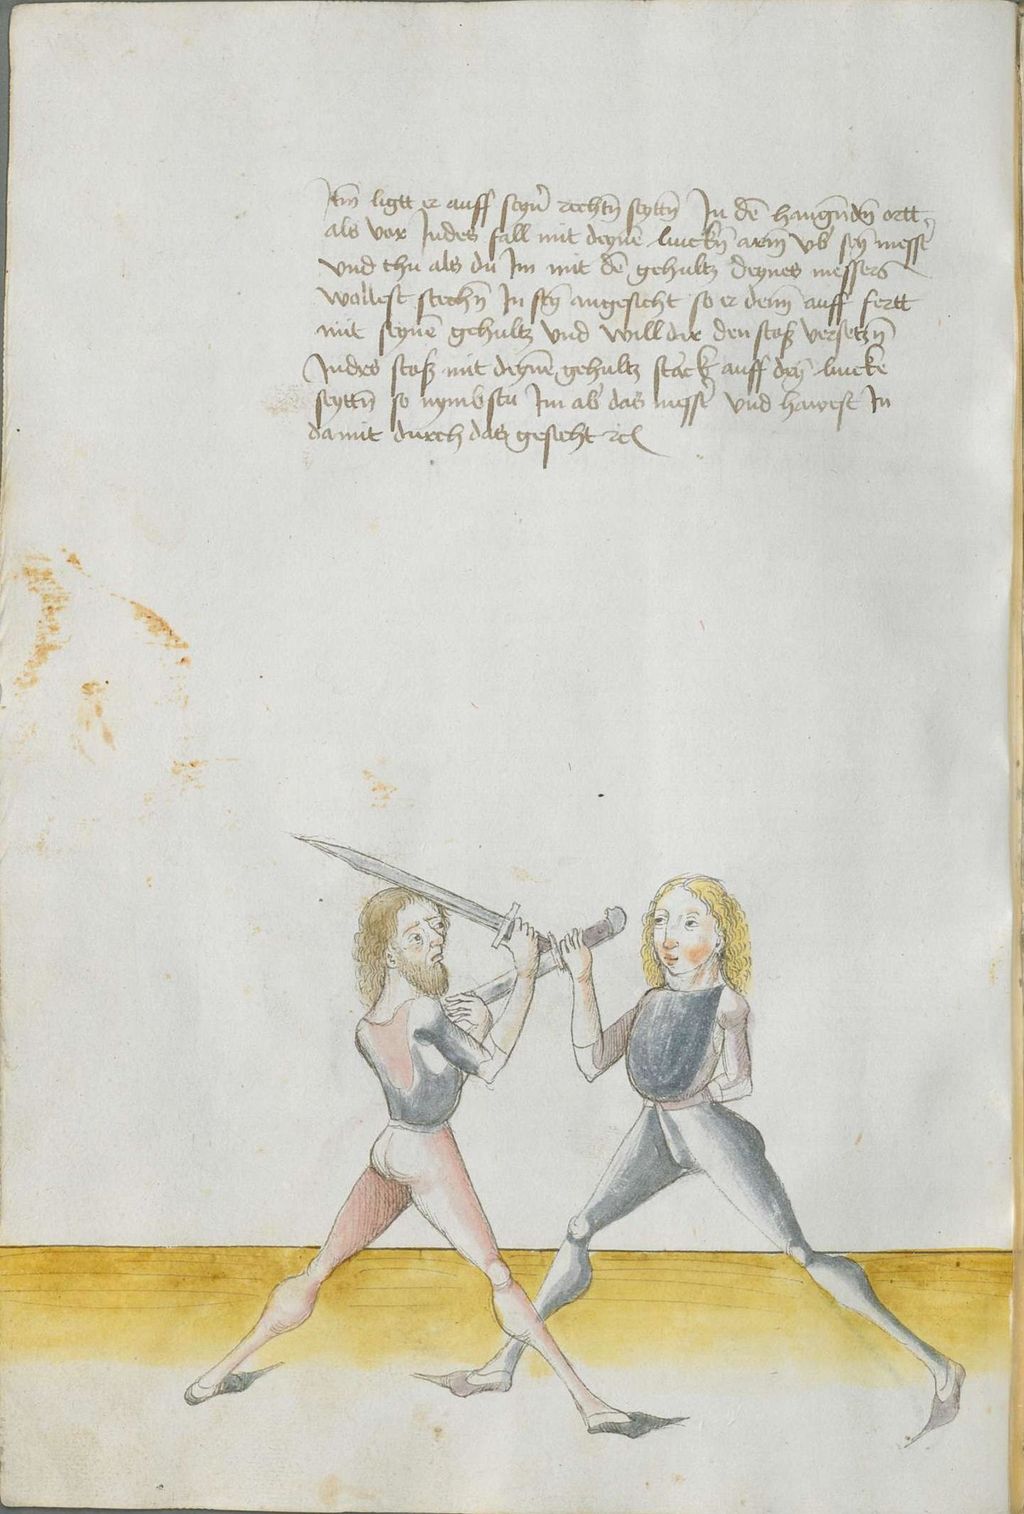 Itm̄ ligtt er auff seyn̄ rechtn̄ seyttn̄ In dē hangn̄dn̄ ortt,
als vor Indes fall mit deynē linckn̄ arm̄ vb̓ sey̅ mess̓
vnd thu als du Im mit dē gehultz deynes messers
wollest stechn̄ In sey̅ angesicht so er denn̄ auff fertt
mit seynē gehultz vnd will dir den stoß versetzn̄
Indes stoß mit deynē gehultz starck auff dey̅ lincke
seyttn̄ so nymbstu Im ab das mess̓ vnd hawest In
damit durch das gesicht ⁊cʅ